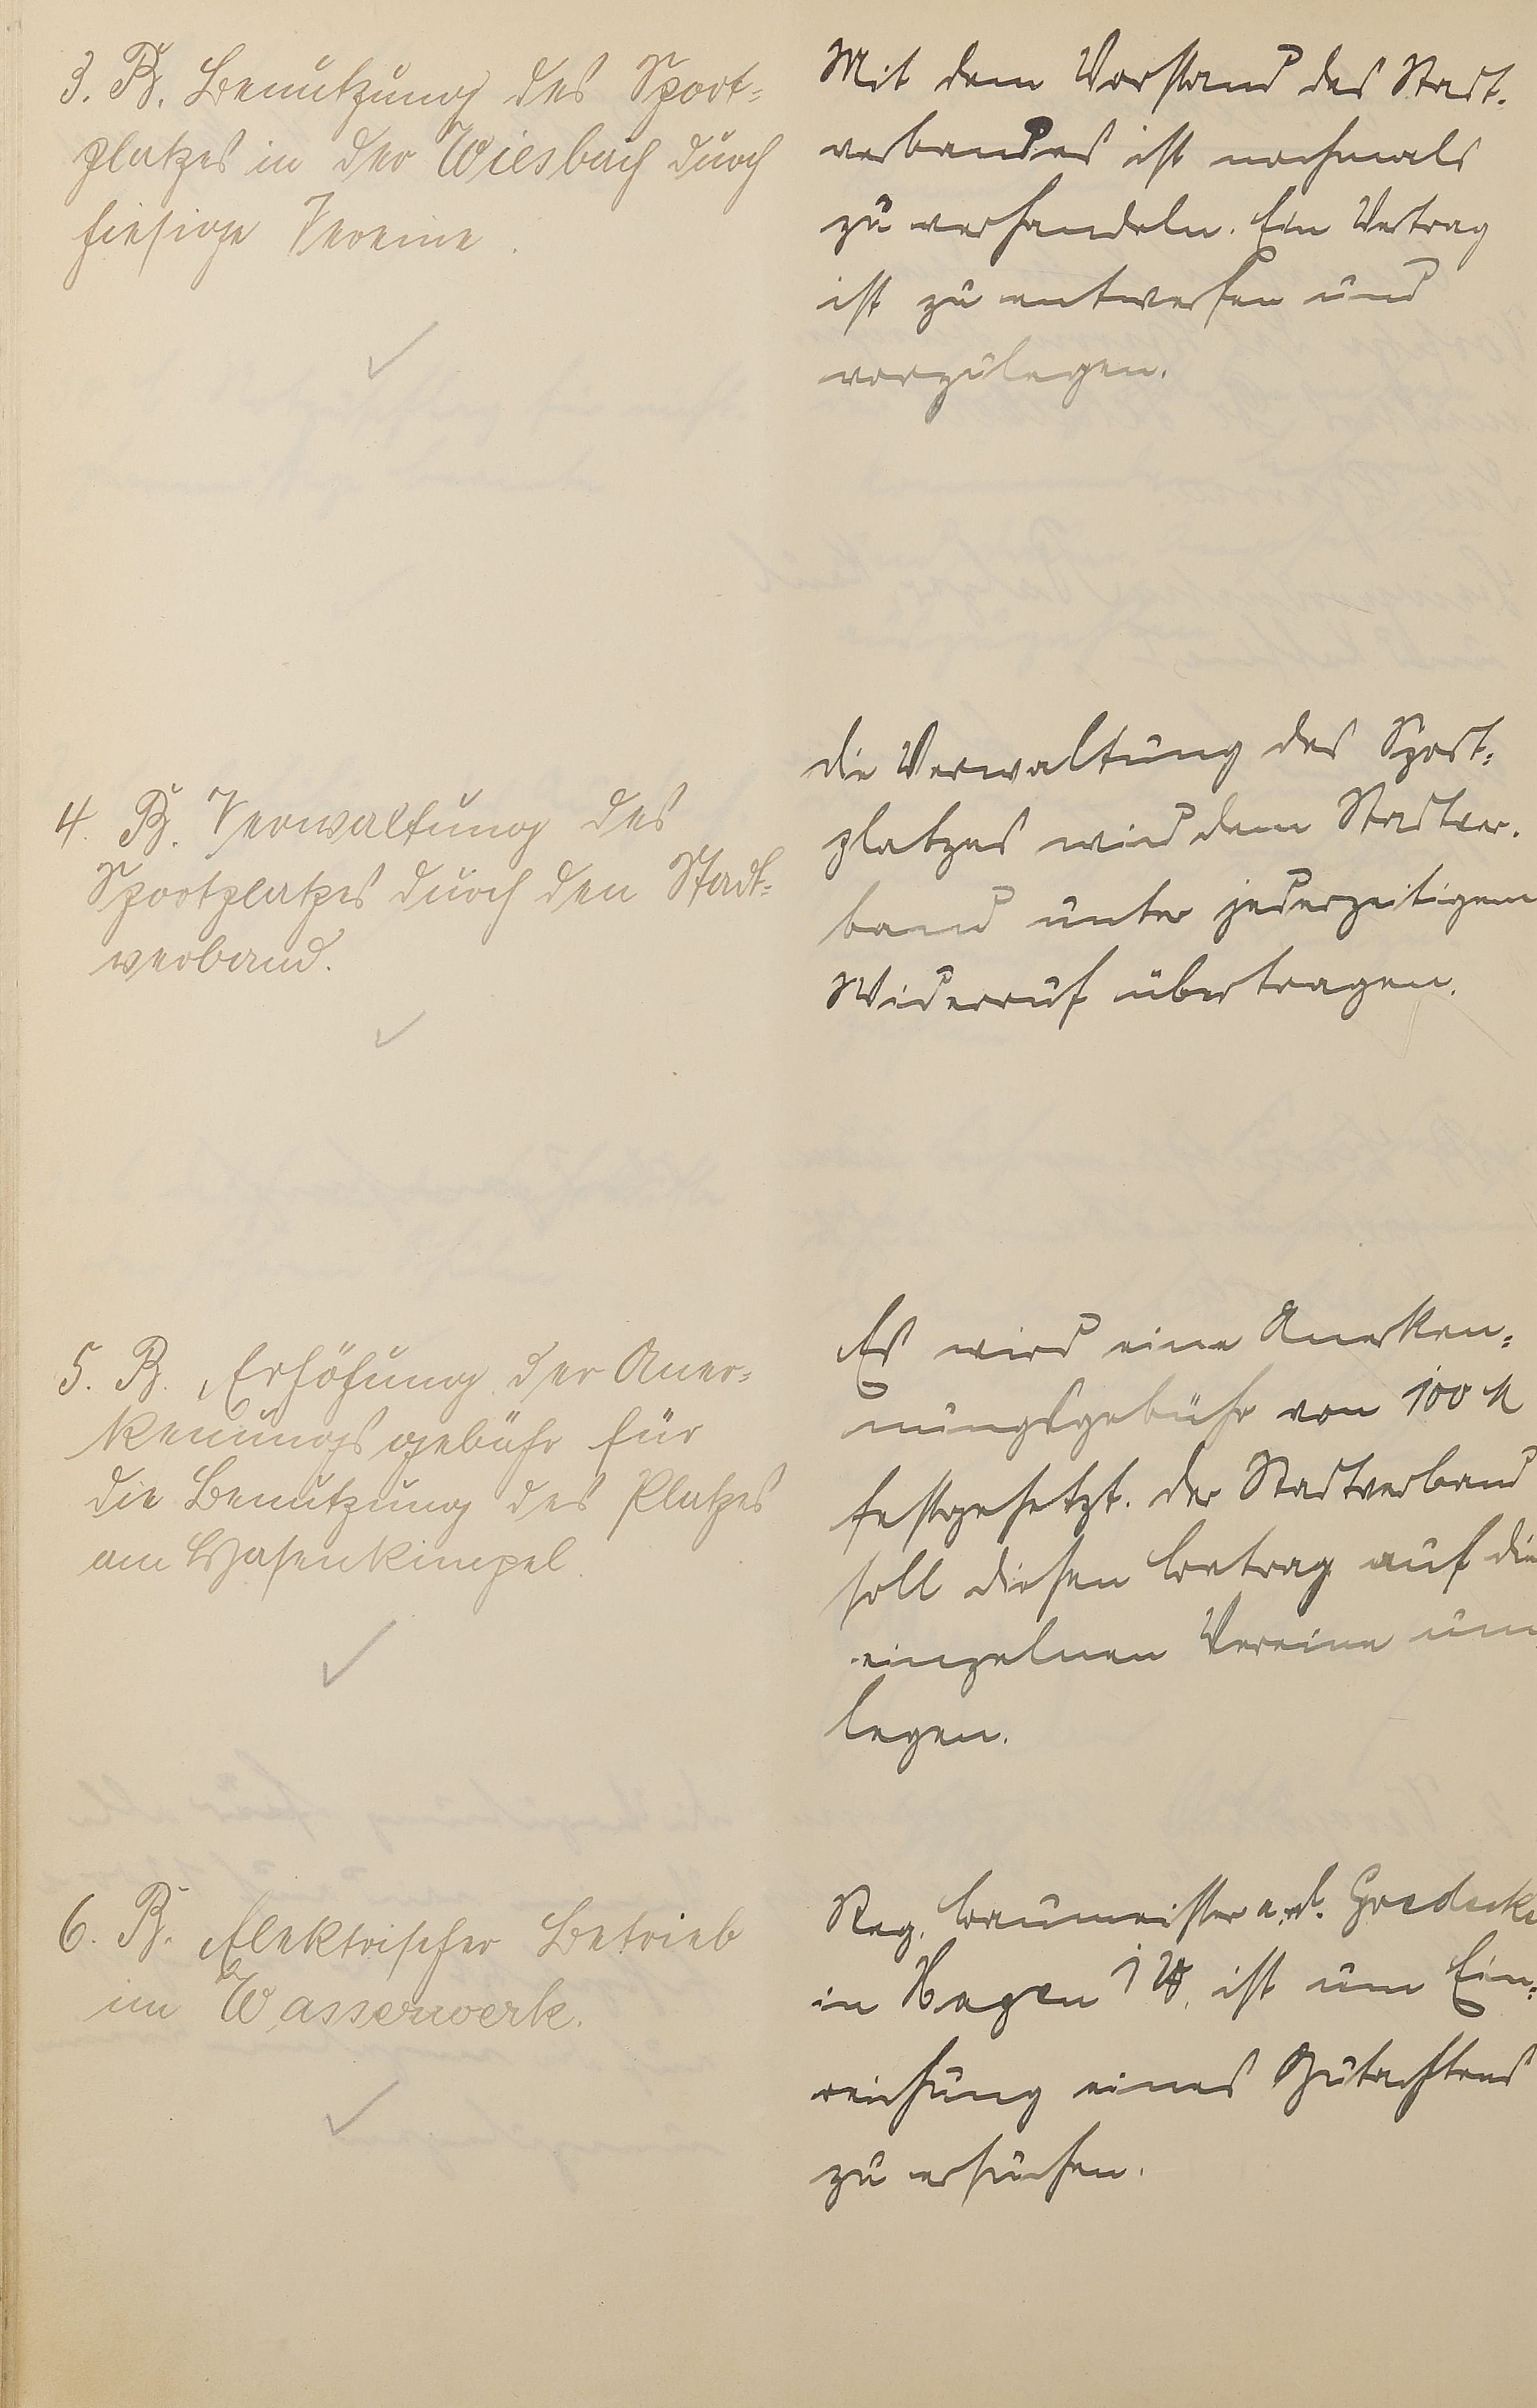 3. B. Benutzung des Sport-
platzes in der Wiesbach durch
hiesige Vereine.
Mit dem Vorstand des Stadt-
verbandes ist nochmals
zu verhandeln. Ein Vertrag
ist zu entwerfen und
vorzulegen.
4. B. Verwaltung des
Sportplatzes durch den Stadt-
verband.
die Verwaltung des Sport-
platzes wird dem Stadtver-
band unter jederzeitigem
Widerruf übertragen.
5. B. Erhöhung der Aner-
kennungsgebühr für
die Benutzung des Platzes
am Hasenkimpel.
Es wird eine Anerken-
nungsgebühr von 100 M
festgesetzt. der Stadtverband
soll diesen Betrag auf die
einzelnen Vereine um
legen.
6. B. Elektrischer Betrieb
im Wasserwerk.
Reg. Baumeister a. d. Goedecke
in Hagen i W. ist um Ein-
reichung eines Gutachtens
zu ersuchen.